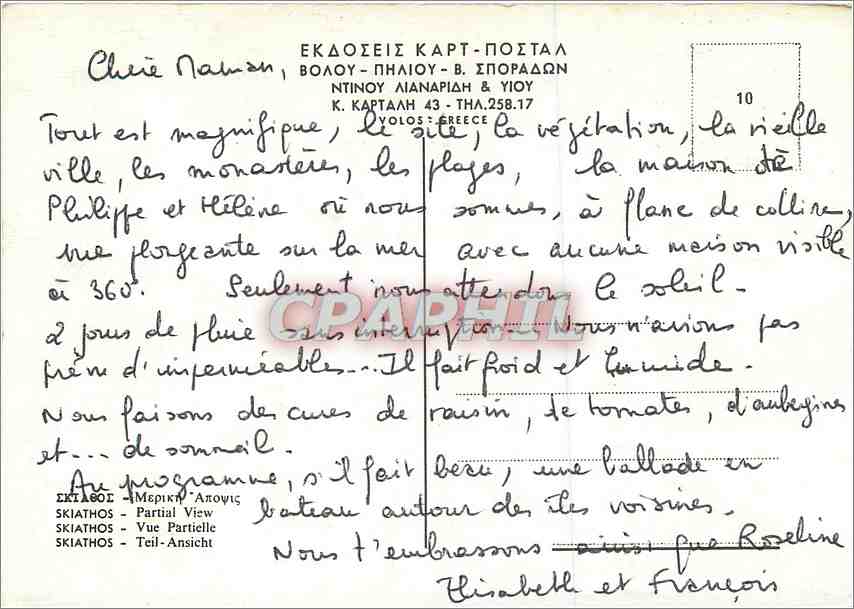 ΕΚΔΟΣΕΙΣ ΚΑΡΤ-ΠΟΣΤΑΛ
ΒΟΛΟΥ-ΠΗΛΙΟΥ-Β. ΣΠΟΡΑΔΩΝ
ΝΤΙΝΟΥ ΛΙΑΝΑΡΙΔΗ & ΥΙΟΥ
Κ. ΚΑΡΤΑΛΗ 43 - ΤΗΛ.258.17
VOLOS-GREECE
10
Chère Maman,
Tout est magnifique, le site, la végétation, la vieille
ville, les monastères, les plages, la maison de
Philippe et Hélène où nous sommes, à flanc de colline,
vue plongeante sur la mer avec aucune maison visible
à 360°. Seulement nous attendons le soleil -
2 jours de pluie sans interruption - Nous n'avions pas
prévu d'imperméables... Il fait froid et humide.
Nous faisons des cures de raisin, de tomates, d'aubergines
et... de sommeil.
Au programme, s'il fait beau, une ballade en
bateau autour des îles voisines.
Nous t'embrassons ainsi que Roseline
Elisabeth et François
ΣΚΙΑΘΟΣ - Μερική Άποψις
SKIATHOS - Partial View
SKIATHOS - Vue Partielle
SKIATHOS - Teil-Ansicht
CPAPHIL